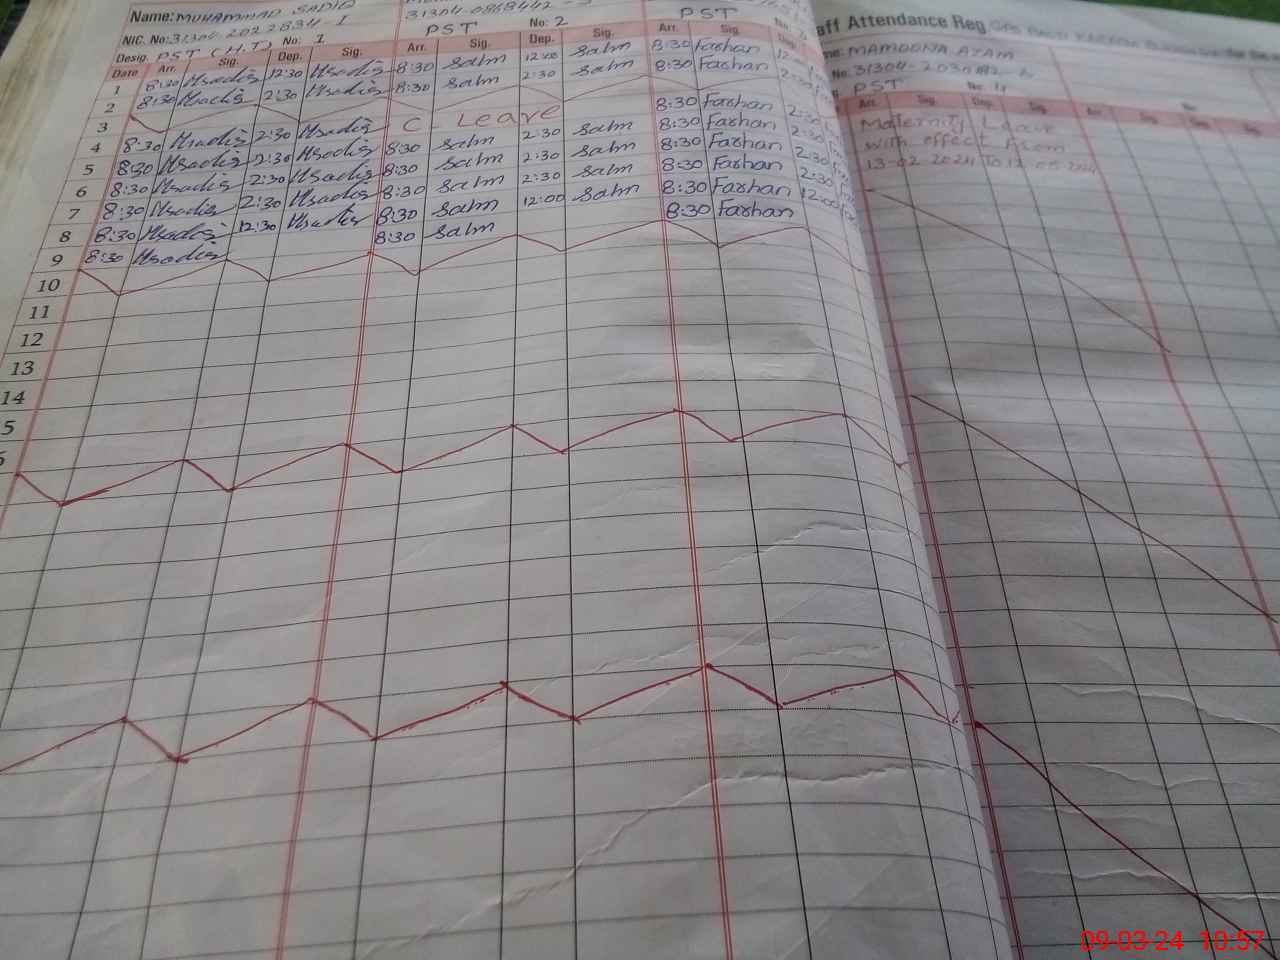 Name: MUHAMMAD SADIQ
NIC. No: 31304-2022834-1
31304-0868442-
Desig. PST (H.T) No: 1
PST No: 2
PST
Date Arr. Sig. Dep. Sig. Arr. Sig. Dep. Sig. Arr. Sig. Dep.
1 8:30 Msadiq 12:30 Msadiq 8:30 Salm 12:00 Salm 8:30 Farhan
2 8:30 Msadiq 2:30 Msadiq 8:30 Salm 2:30 Salm 8:30 Farhan
3
4 8:30 Msadiq 2:30 Msadiq C. Leave 8:30 Farhan
5 8:30 Msadiq 2:30 Msadiq 8:30 Salm 2:30 Salm 8:30 Farhan
6 8:30 Msadiq 2:30 Msadiq 8:30 Salm 2:30 Salm 8:30 Farhan
7 8:30 Msadiq 2:30 Msadiq 8:30 Salm 2:30 Salm 8:30 Farhan
8 8:30 Msadiq 12:30 Msadiq 8:30 Salm 12:00 Salm 8:30 Farhan 12:00
9 8:30 Msadiq 8:30 Salm 8:30 Farhan
10
11
12
13
14
5
aff Attendance Reg
me: MAMOONA AYAM
No. 31304-2030
PST No. 4
Arr. Sig. Dep. Sig. Arr.
Maternity Leave
with effect From
13-02-2024 To
09-03-24 10:57